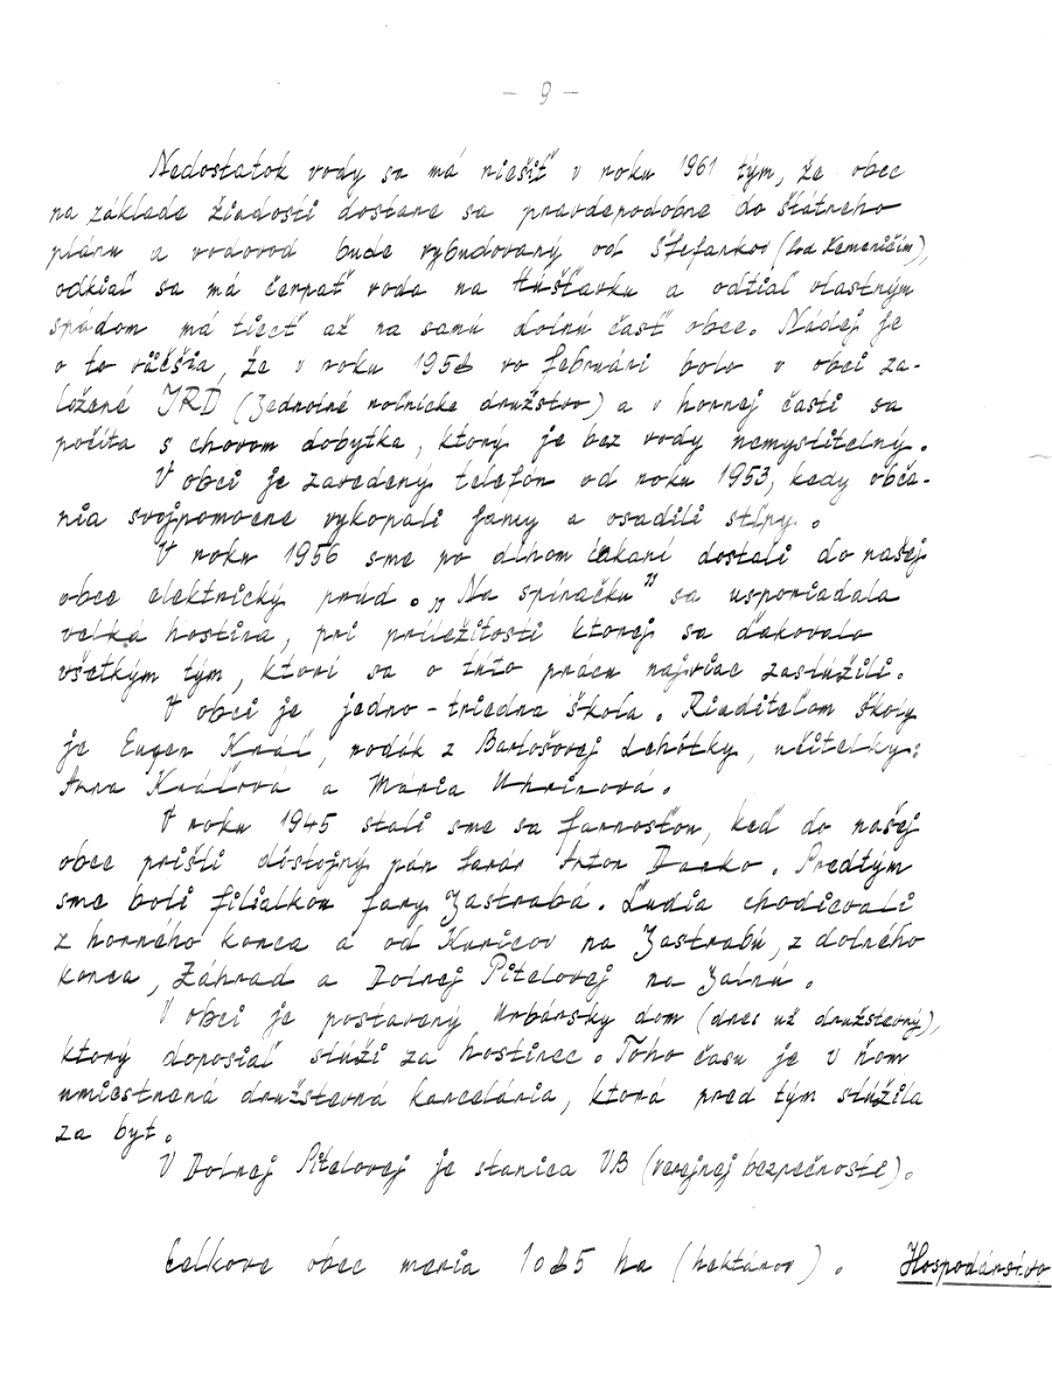 - 9 -
Nedostatok vody sa má riešiť v roku 1961 tým, že obec
na základe žiadosti dostane sa pravdepodobne do štátneho
plánu a vodovod bude vybudovaný od Štefankov (pod Kemeničím),
odkiaľ sa má čerpať voda na Húšťavku a odtiaľ vlastným
spádom má tiecť až na samú dolnú časť obce. Nádej je
o to väčšia, že v roku 1958 vo februári bolo v obci za-
ložené JRD (Jednotné roľnícke družstvo) a v hornej časti sa
počíta s chovom dobytka, ktorý je bez vody nemysliteľný.
V obci je zavedený telefón od roku 1953, kedy obča-
nia svojpomocne vykopali jamy a osadili stĺpy.
V roku 1956 sme po dlhom čakaní dostali do našej
obce elektrický prúd. „Na spínačku" sa usporiadala
veľká hostina, pri príležitosti ktorej sa ďakovalo
všetkým tým, ktorí sa o túto prácu najviac zaslúžili.
V obci je jedno-triedna škola. Riaditeľom školy
je Eugen Kráľ, rodák z Bartošovej Lehôtky, učiteľky:
Anna Kráľová a Mária Uhrinová.
V roku 1945 stali sme sa farnosťou, keď do našej
obce prišli dôstojný pán farár Anton Danko. Predtým
sme boli filialkou fary Jastrabá. Ľudia chodievali
z horného konca a od Kuricov na Jastrabú, z dolného
konca, Záhrad a Dolnej Pitelovej na Jalnú.
V obci je postavený Urbársky dom (dnes už družstevný),
ktorý doposiaľ slúži za hostinec. Toho času je v ňom
umiestnená družstevná kancelária, ktorá pred tým slúžila
za byt.
V Dolnej Pitelovej je stanica VB (verejnej bezpečnosti).
Celkove obec meria ha (hektárov). Hospodárstvo